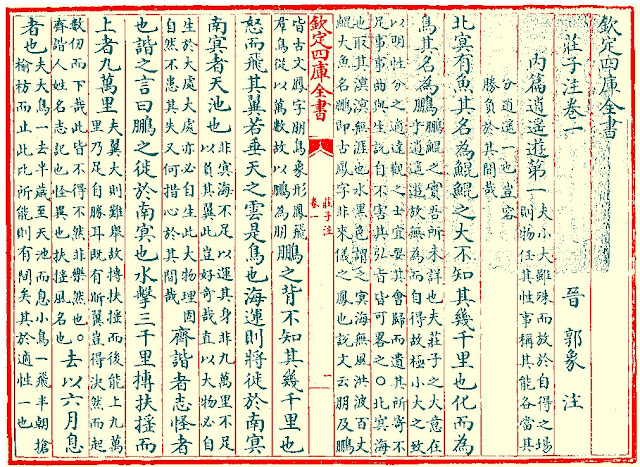 欽定四庫全書
莊子注卷一
晉 郭象 注
內篇逍遙遊第一
夫小大雖殊而放於自得之場
則物任其性事稱其能各當其
分逍遙一也豈容
勝負於其間哉
北冥有魚其名為鯤鯤之大不知其幾千里也化而為
鳥其名為鵬
鵬鯤之實吾所未詳也夫莊子之大意在
乎逍遙遊放無為而自得故極小大之致
以明性分之適達觀之士宜要其會歸而遺其所寄不
足事事曲與生說自不害其弘旨皆可畧之○北冥海
也取其溟漠無涯也水黑色謂之冥海無風洪波百丈
鯤大魚名鵬即古鳳字非來儀之鳳也說文云朋及鵬
欽定四庫全書
莊子注
卷一
一
皆古文鳳字朋鳥象形鳳飛
羣鳥從以萬數故以鵬為朋
鵬之背不知其幾千里也
怒而飛其翼若垂天之雲是鳥也海運則將徙於南冥
南冥者天池也
非冥海不足以運其身非九萬里不足
以負其翼此豈好奇哉直以大物必自
生於大處大處亦必自生此大物理固
自然不患其失又何措心於其間哉
齊諧者志怪者
也諧之言曰鵬之徙於南冥也水擊三千里摶扶揺而
上者九萬里
夫翼大則難舉故摶扶揺而後能上九萬
里乃足自勝耳既有斯翼豈得決然而起
數仞而下哉此皆不得不然非樂然也○
齊諧人姓名志記也怪異也扶揺風名也
去以六月息
者也
夫大鳥一去半歲至天池而息小鳥一飛半朝搶
榆枋而止此比所能則有間矣其於適性一也